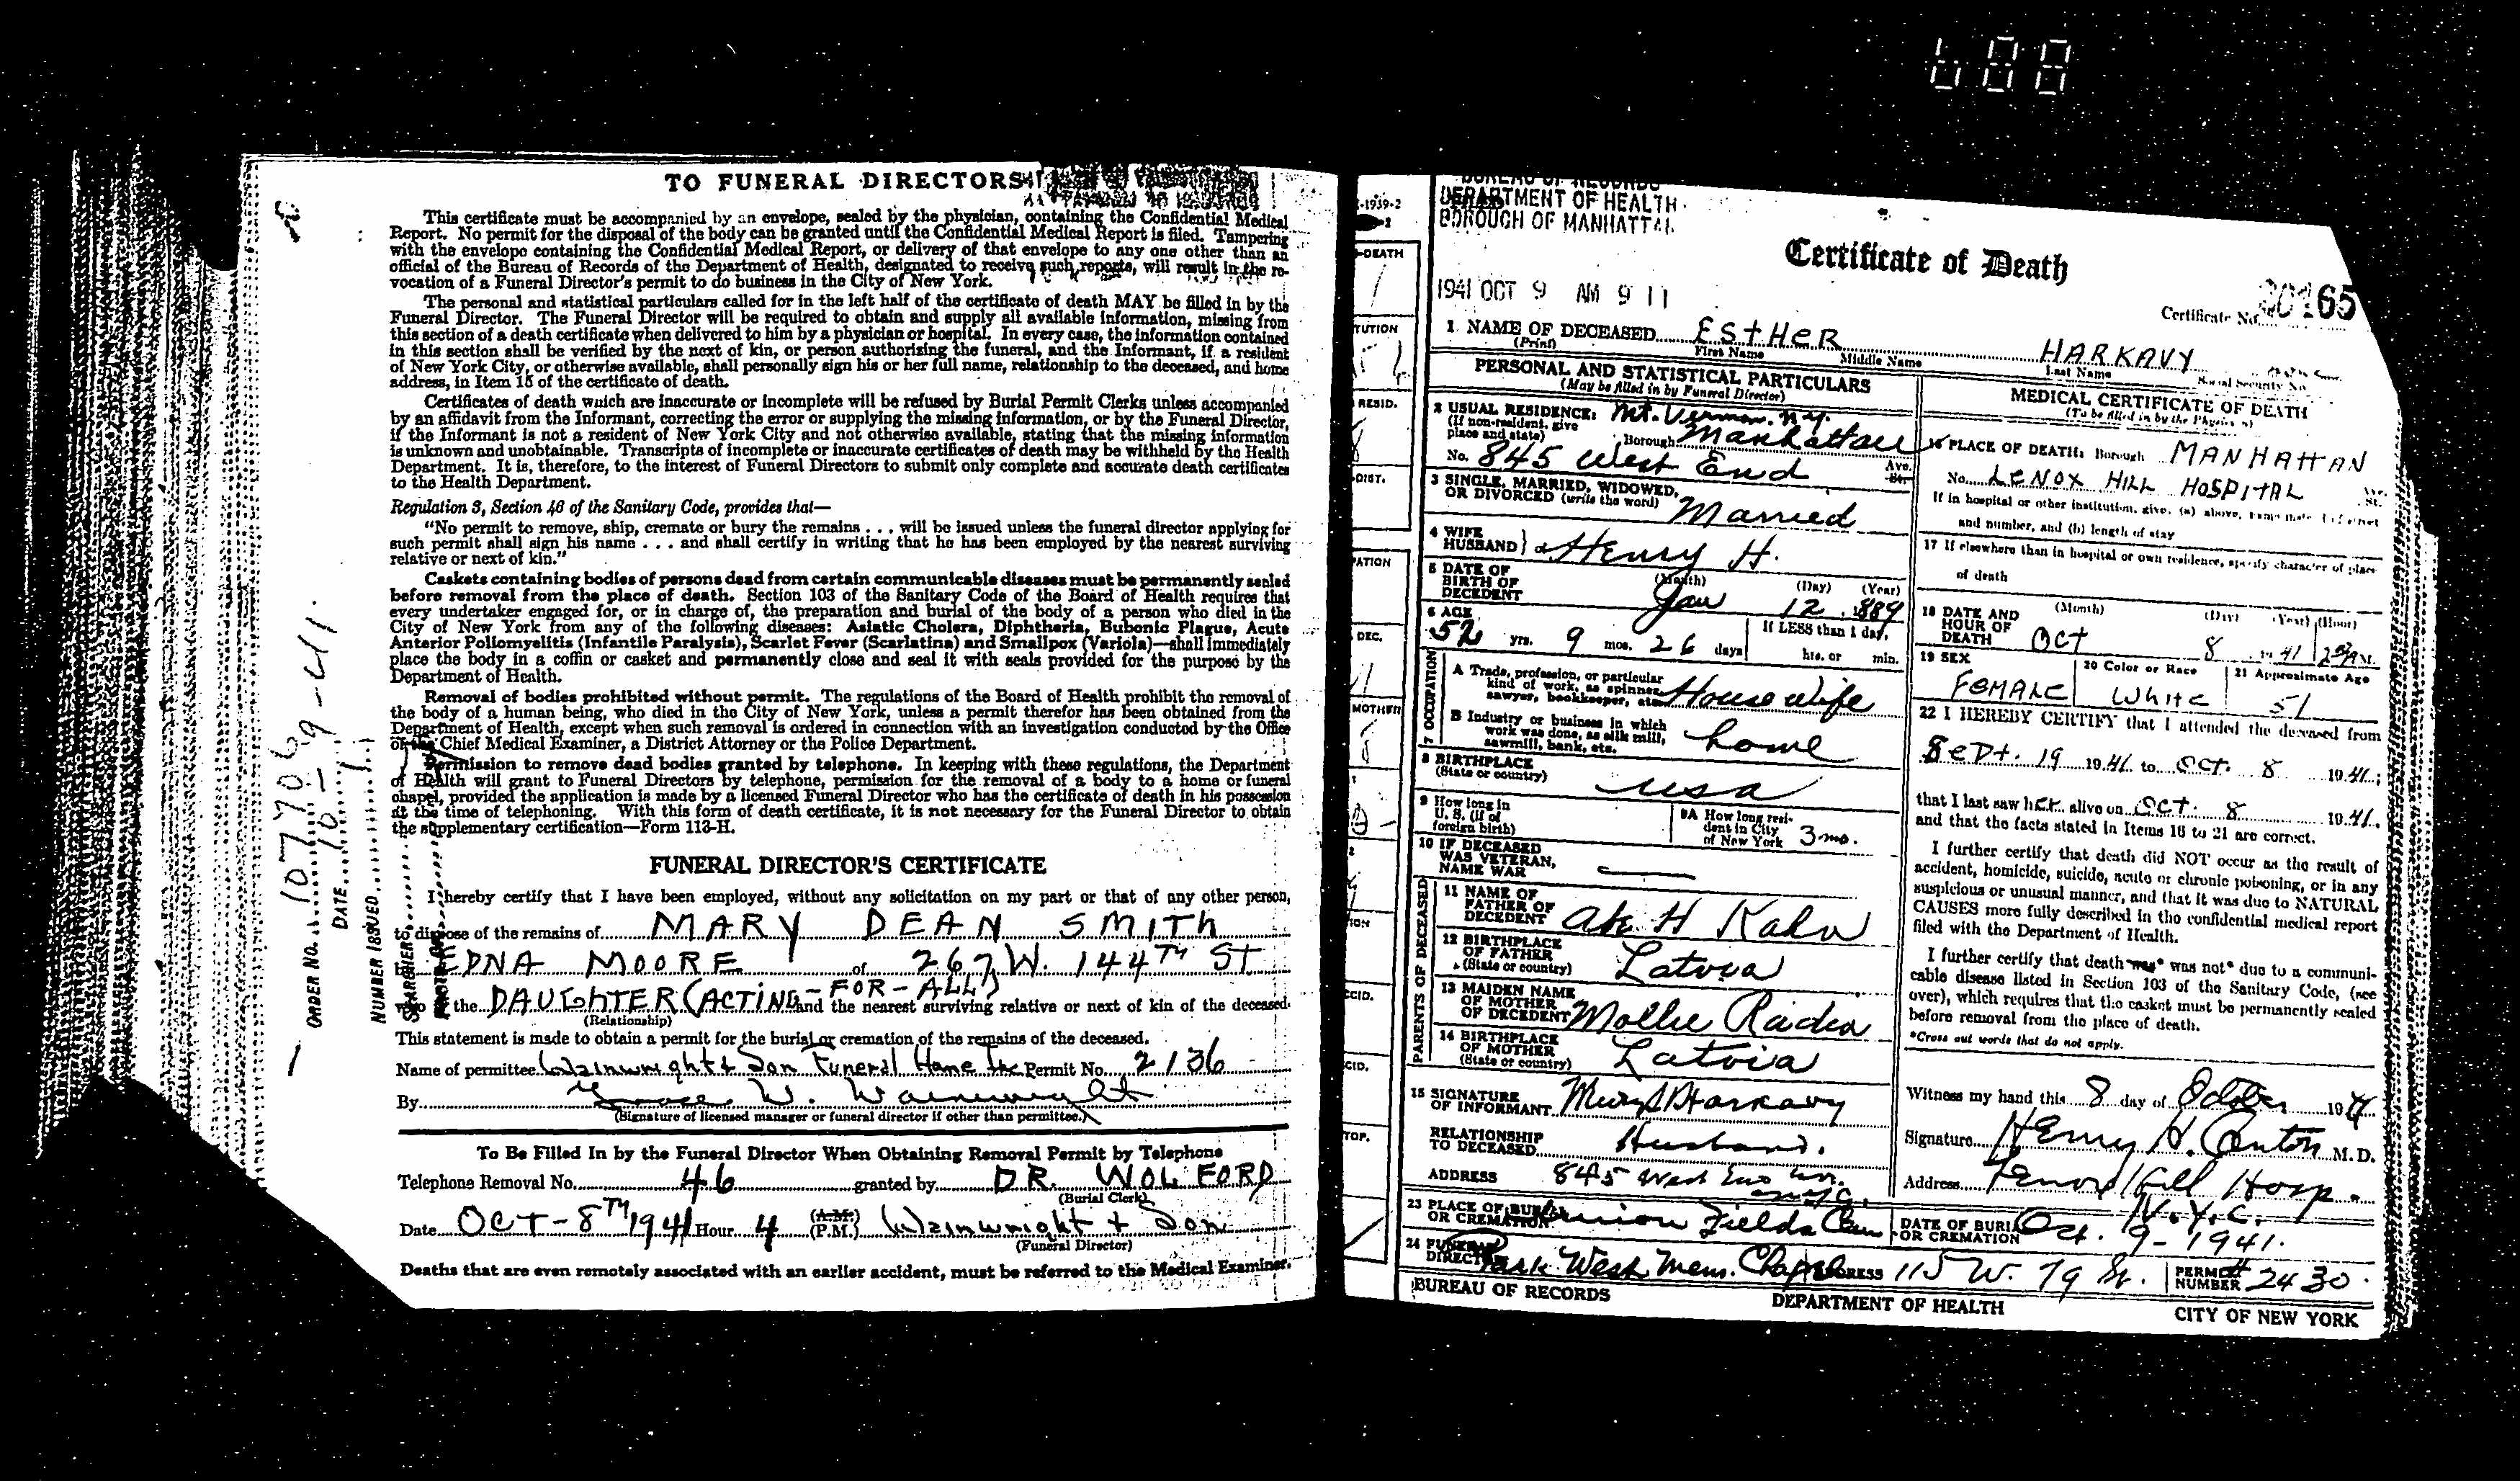 TO FUNERAL DIRECTORS
This certificate must be accompanied by an envelope, sealed by the physician, containing the Confidential Medical
Report. No permit for the disposal of the body can be granted until the Confidential Medical Report is filed. Tampering
with the envelope containing the Confidential Medical Report, or delivery of that envelope to any one other than an
official of the Bureau of Records of the Department of Health, designated to receive such reports, will result in the re-
vocation of a Funeral Director's permit to do business in the City of New York.
The personal and statistical particulars called for in the left half of the certificate of death MAY be filled in by the
Funeral Director. The Funeral Director will be required to obtain and supply all available information, missing from
this section of a death certificate when delivered to him by a physician or hospital. In every case, the information contained
in this section shall be verified by the next of kin, or person authorizing the funeral, and the Informant, if a resident
of New York City, or otherwise available, shall personally sign his or her full name, relationship to the deceased, and home
address, in Item 15 of the certificate of death.
Certificates of death which are inaccurate or incomplete will be refused by Burial Permit Clerks unless accompanied
by an affidavit from the Informant, correcting the error or supplying the missing information, or by the Funeral Director,
if the Informant is not a resident of New York City and not otherwise available, stating that the missing information
is unknown and unobtainable. Transcripts of incomplete or inaccurate certificates of death may be withheld by the Health
Department. It is, therefore, to the interest of Funeral Directors to submit only complete and accurate death certificates
to the Health Department.
Regulation 3, Section 46 of the Sanitary Code, provides that—
"No permit to remove, ship, cremate or bury the remains . . . will be issued unless the funeral director applying for
such permit shall sign his name . . . and shall certify in writing that he has been employed by the nearest surviving
relative or next of kin."
Caskets containing bodies of persons dead from certain communicable diseases must be permanently sealed
before removal from the place of death. Section 103 of the Sanitary Code of the Board of Health requires that
every undertaker engaged for, or in charge of, the preparation and burial of the body of a person who died in the
City of New York from any of the following diseases: Asiatic Cholera, Diphtheria, Bubonic Plague, Acute
Anterior Poliomyelitis (Infantile Paralysis), Scarlet Fever (Scarlatina) and Smallpox (Variola)—shall immediately
place the body in a coffin or casket and permanently close and seal it with seals provided for the purpose by the
Department of Health.
Removal of bodies prohibited without permit. The regulations of the Board of Health prohibit the removal of
the body of a human being, who died in the City of New York, unless a permit therefor has been obtained from the
Department of Health, except when such removal is ordered in connection with an investigation conducted by the Office
of the Chief Medical Examiner, a District Attorney or the Police Department.
Permission to remove dead bodies granted by telephone. In keeping with these regulations, the Department
of Health will grant to Funeral Directors by telephone, permission for the removal of a body to a home or funeral
chapel, provided the application is made by a licensed Funeral Director who has the certificate of death in his possession
at the time of telephoning. With this form of death certificate, it is not necessary for the Funeral Director to obtain
the supplementary certification—Form 113-H.
FUNERAL DIRECTOR'S CERTIFICATE
I hereby certify that I have been employed, without any solicitation on my part or that of any other person,
to dispose of the remains of MARY DEAN SMITH
EDNA MOORE of 267 W. 144TH ST
who the DAUGHTER (ACTING-FOR-ALL) and the nearest surviving relative or next of kin of the deceased.
(Relationship)
This statement is made to obtain a permit for the burial or cremation of the remains of the deceased.
Name of permittee Wainwright & Son Funeral Home Inc Permit No. 2136
By W. Wainwright
(Signature of licensed manager or funeral director if other than permittee.)
To Be Filled In by the Funeral Director When Obtaining Removal Permit by Telephone
Telephone Removal No. 46 granted by DR. WOLFORD
(Burial Clerk)
Date OCT-8TH 1941 Hour 4 (A.M.) (P.M.) Wainwright + Son
(Funeral Director)
Deaths that are even remotely associated with an earlier accident, must be referred to the Medical Examiner.
ORDER NO. 107706
DATE 10-9-41.
NUMBER ISSUED
SEARCHER
-1939-2
DEATH
TUTION
RESID.
DIST.
PATION
DEC.
MOTHER
ION
CCID.
CID.
TOP.
BUREAU OF RECORDS
DEPARTMENT OF HEALTH
BOROUGH OF MANHATTAN
1941 OCT 9 AM 9 11
Certificate of Death
Certificate No. 20165
1 NAME OF DECEASED ESTHER HARKAVY
(Print) First Name Middle Name Last Name Social Security No.
PERSONAL AND STATISTICAL PARTICULARS
(May be filled in by Funeral Director)
2 USUAL RESIDENCE: Mt. Vernon. N.Y.
(If non-resident, give place and state) Borough Manhattan
No. 845 West End Ave. St.
3 SINGLE, MARRIED, WIDOWED,
OR DIVORCED (write the word) Married
4 WIFE
HUSBAND } of Henry H.
5 DATE OF
BIRTH OF
DECEDENT (Month) Jan (Day) 12 (Year) 1889
6 AGE 52 yrs. 9 mos. 26 days If LESS than 1 day, hrs. or min.
7 OCCUPATION
A Trade, profession, or particular
kind of work, as spinner,
sawyer, bookkeeper, etc. Housewife
B Industry or business in which
work was done, as silk mill,
sawmill, bank, etc. home
8 BIRTHPLACE
(State or country) usa
9 How long in
U. S. (if of
foreign birth)
9A How long resi-
dent in City
of New York 3 mo.
10 IF DECEASED
WAS VETERAN,
NAME WAR —
PARENTS OF DECEASED
11 NAME OF
FATHER OF
DECEDENT Abe H Kahn
12 BIRTHPLACE
OF FATHER
(State or country) Latvia
13 MAIDEN NAME
OF MOTHER
OF DECEDENT Mollie
14 BIRTHPLACE
OF MOTHER
(State or country) Latvia
15 SIGNATURE
OF INFORMANT Harkavy
RELATIONSHIP
TO DECEASED Husband.
ADDRESS 845 West End Av.
23 PLACE OF BURIAL
OR CREMATION Union Fields Cem
DATE OF BURIAL
OR CREMATION Oct. 9-1941.
24 FUNERAL
DIRECTOR Park West Mem. Chapel ADDRESS 115 W. 79 St. PERMIT
NUMBER 2430
BUREAU OF RECORDS DEPARTMENT OF HEALTH CITY OF NEW YORK
MEDICAL CERTIFICATE OF DEATH
(To be filled in by the Physician)
16 PLACE OF DEATH: Borough MANHATTAN
No. LENOX HILL HOSPITAL Ave. St.
If in hospital or other institution, give, (a) above, name instead of street
and number, and (b) length of stay
17 If elsewhere than in hospital or own residence, specify character of place
of death
18 DATE AND
HOUR OF
DEATH (Month) Oct (Day) 8 (Year) 1941 (Hour) M.
19 SEX FEMALE 20 Color or Race White 21 Approximate Age 51
22 I HEREBY CERTIFY that I attended the deceased from
Sept. 19 1941 to Oct. 8 1941;
that I last saw her alive on Oct. 8 1941.
and that the facts stated in Items 16 to 21 are correct.
I further certify that death did NOT occur as the result of
accident, homicide, suicide, acute or chronic poisoning, or in any
suspicious or unusual manner, and that it was due to NATURAL
CAUSES more fully described in the confidential medical report
filed with the Department of Health.
I further certify that death was* was not* due to a communi-
cable disease listed in Section 103 of the Sanitary Code, (see
over), which requires that the casket must be permanently sealed
before removal from the place of death.
*Cross out words that do not apply.
Witness my hand this 8 day of October 1941
Signature Henry H. M.D.
Address Lenox Hill Hosp.
N.Y.C.